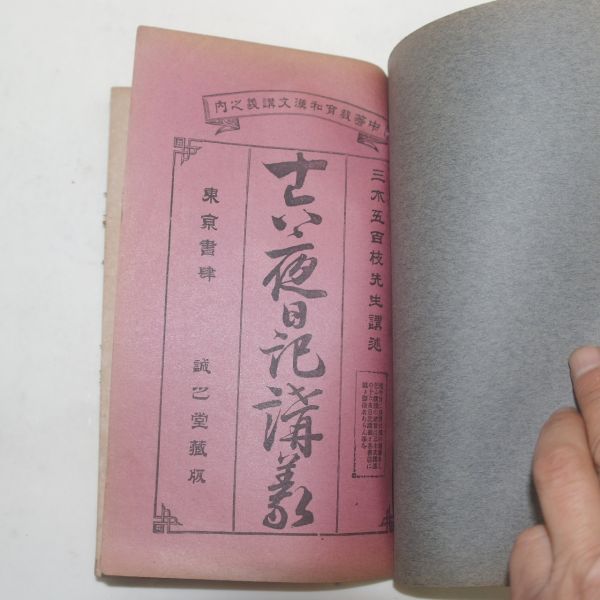 中等教育和漢文講義之内
三木五百枝先生講述
十六夜日記講義
東京書肆 誠之堂藏版